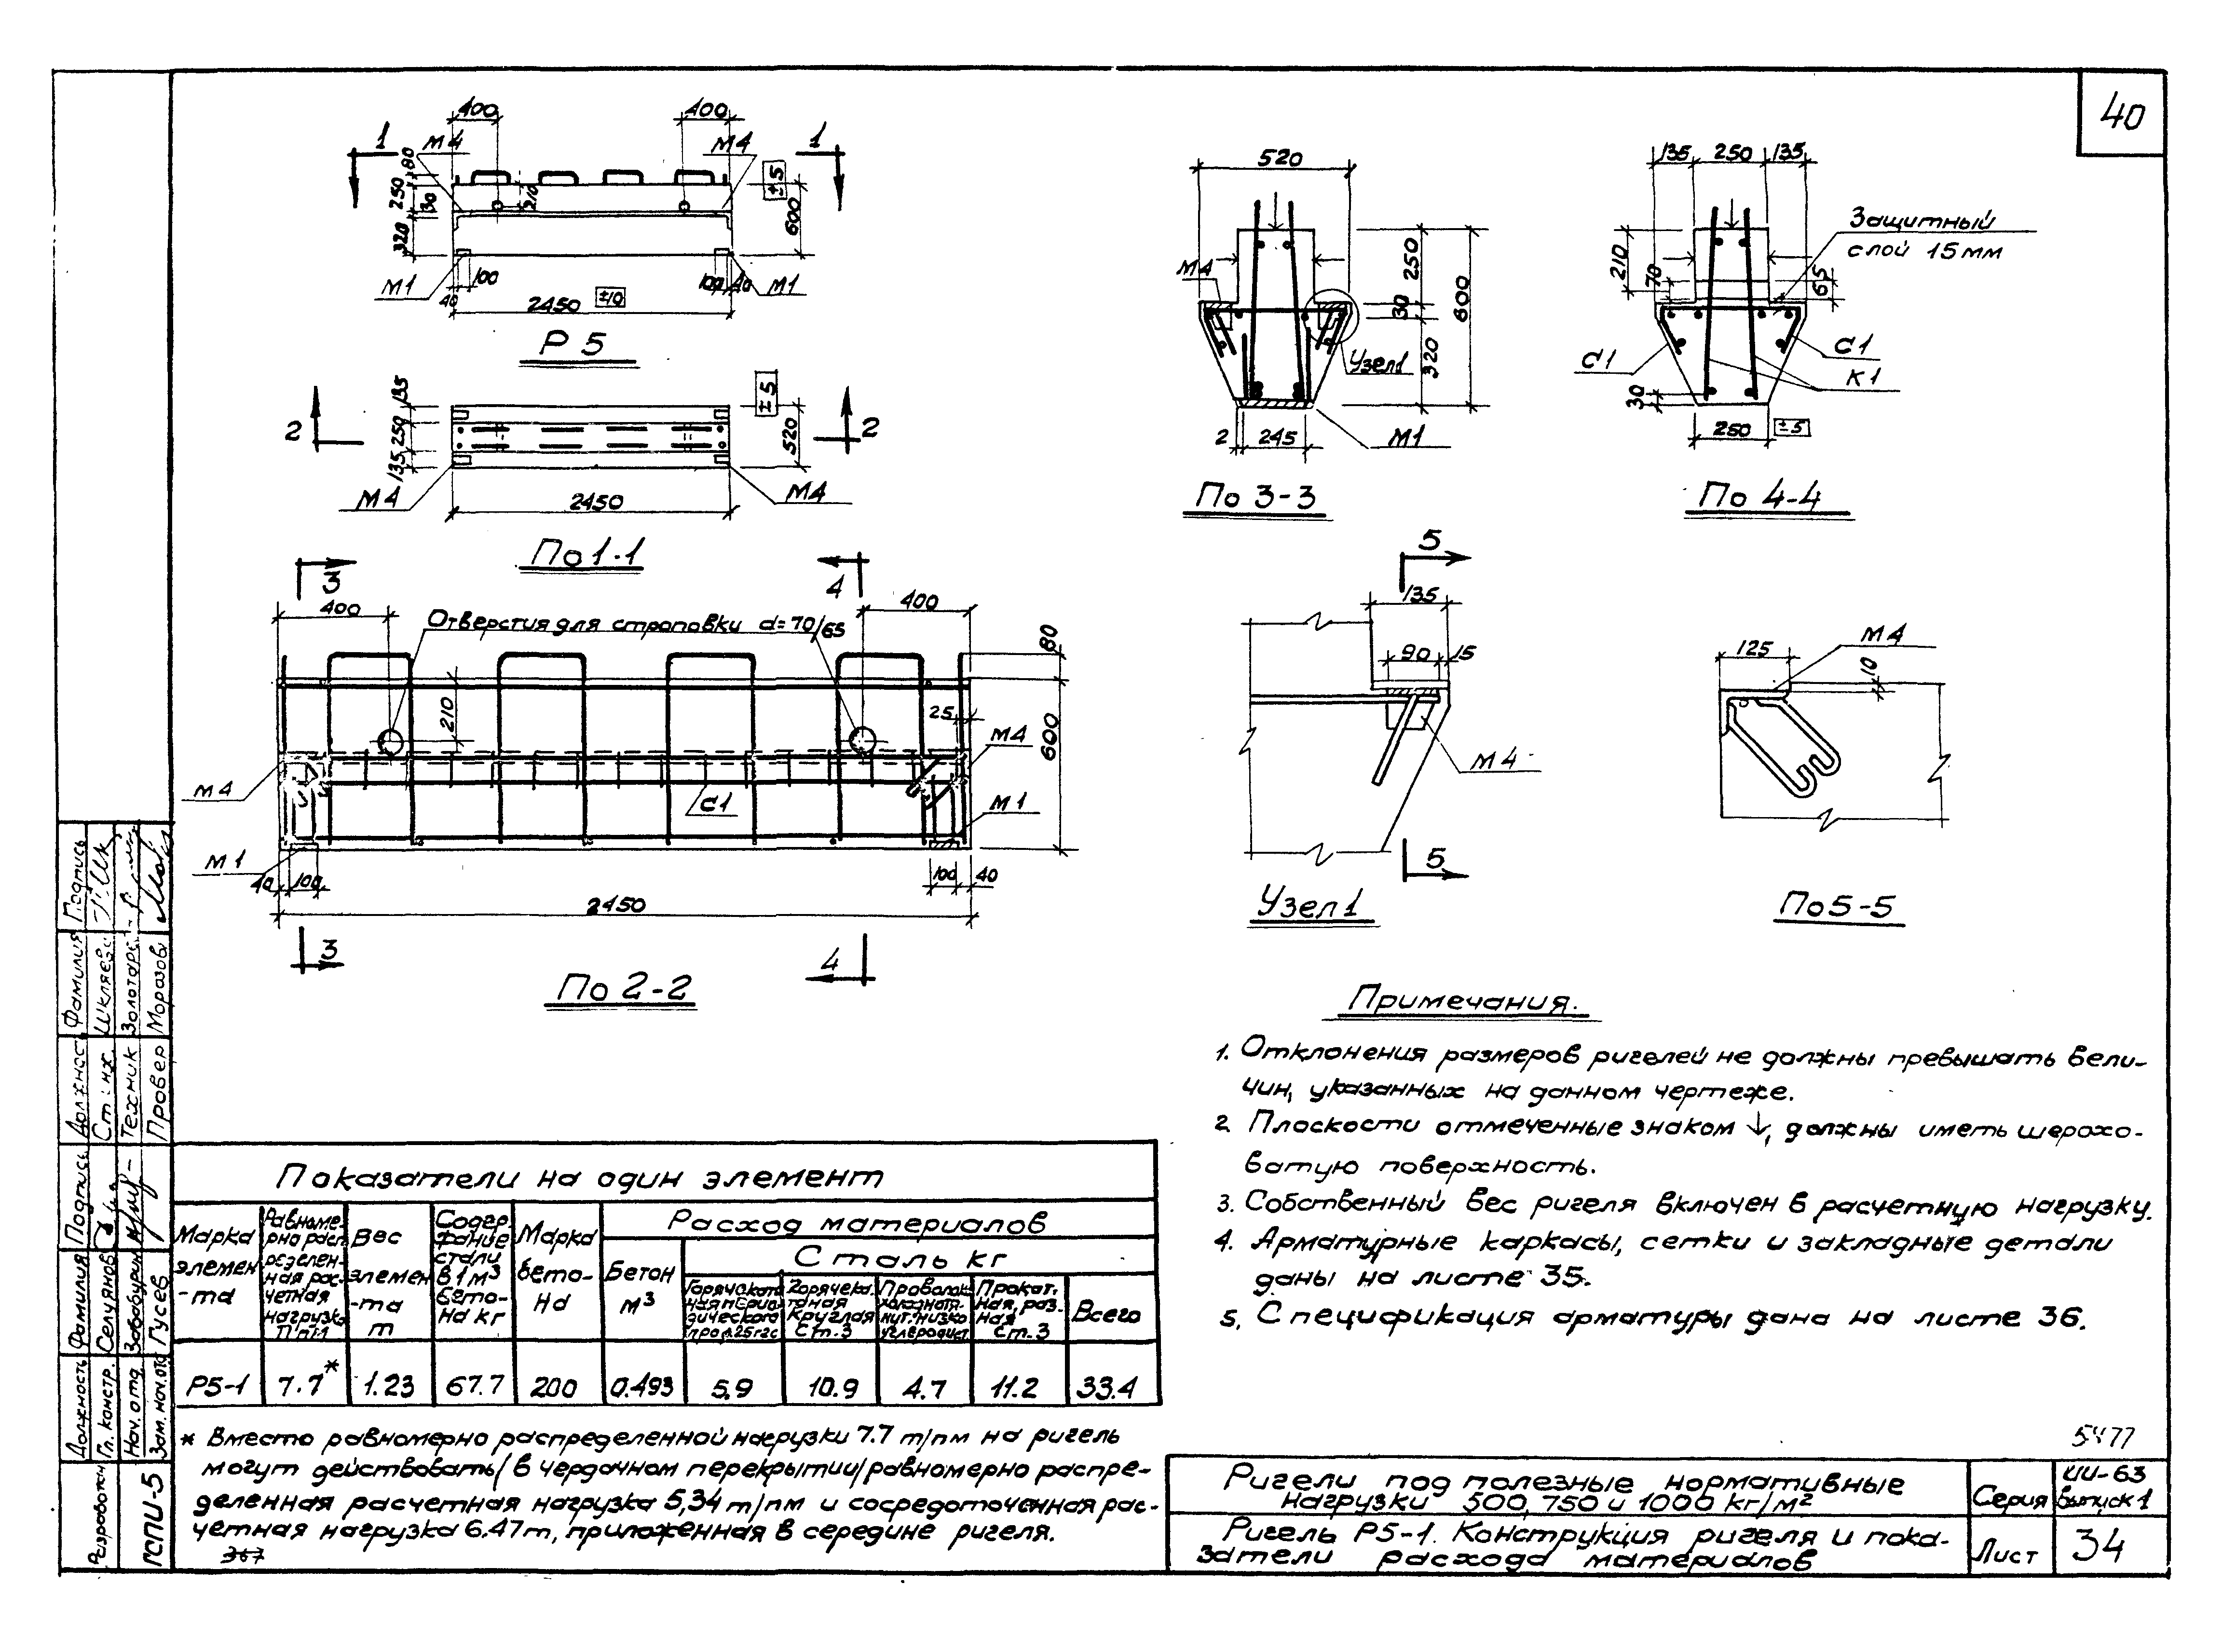 40
400
400
1
1
М4
М4
80
250
30
210
±5
600
320
М1
40
100
100
40
М1
2450 ±10
Р 5
135
250
135
2
2
±5
520
М4
М4
2450
По 1-1
3
4
400
400
Отверстия для строповки d=70/65
80
210
25
М4
600
М4
С1
М1
М1
40
100
100
40
2450
3
4
По 2-2
520
М4
250
30
320
600
Узел1
2
245
М1
По 3-3
135
250
135
Защитный
слой 15мм
210
70
65
С1
С1
К1
30
250 ±5
По 4-4
5
135
90
15
М4
5
Узел 1
125
М4
10
По 5-5
Примечания.
1. Отклонения размеров ригелей не должны превышать вели-
чин, указанных на данном чертеже.
2. Плоскости отмеченные знаком ↓, должны иметь шерохо-
ватую поверхность.
3. Собственный вес ригеля включен в расчетную нагрузку.
4. Арматурные каркасы, сетки и закладные детали
даны на листе 35.
5. Спецификация арматуры дана на листе 36.
Показатели на один элемент
Марка
элемен
-та
Равноме-
рно расп
ределен-
ная рас-
четная
нагрузка
Вес
элемен
-та
т
Содер-
жание
стали
в 1 м³
бето-
на кг
Марка
бето-
на
Расход материалов
Бетон
м³
Сталь кг
Горячеката
ная перио-
дического
Горячека
таная
круглая
Ст.3
Проволок
холоднотя-
нут. низко
углеродист
Прокат.
ная, раз-
ная
Ст.3
Всего
Р5-1
7.7*
1.23
67.7
200
0.493
5.9
10.9
4.7
11.2
33.4
* Вместо равномерно распределенной нагрузки 7.7 т/пм на ригель
могут действовать/в чердачном перекрытии/равномерно распре-
деленная расчетная нагрузка 5,34 т/пм и сосредоточенная рас-
четная нагрузка 6.47т, приложенная в середине ригеля.
367
5477
Ригели под полезные нормативные
нагрузки 500, 750 и 1000 кг/м²
Серия
ИИ-63
Выпуск 1
Ригель Р5-1. Конструкция ригеля и пока-
затели расхода материалов
Лист
34
Подпись
Фамилия
Должнос
Ст. инж.
Техник
Провер
Моразов
Подпись
Фамилия
Должность
Гл. констр.
Селуянов
Нач. отд.
Зам. нач. отд
Гусев
Разработан
ГСПИ-5